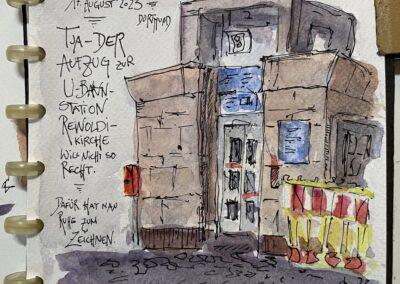 17. AUGUST 2023
DORTMUND
TJA-DER
AUFZUG ZUR
U-BAHN-
STATION
REINOLDI-
KIRCHE
WILL NICHT SO
RECHT.
DAFÜR HAT MAN
RUHE ZUM
ZEICHNEN.